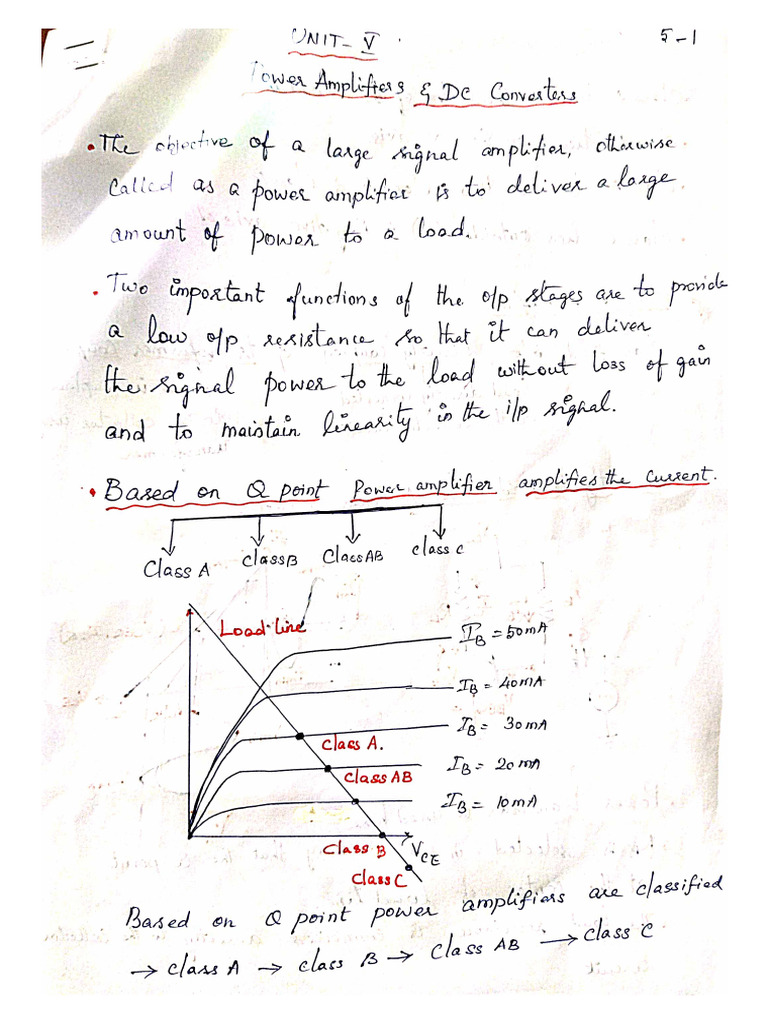 UNIT-V
5-1
Power Amplifiers & DC Converters
• The objective of a large signal amplifier, otherwise
called as a power amplifier is to deliver a large
amount of power to a load.
• Two important functions of the o/p stages are to provide
a low o/p resistance so that it can deliver
the signal power to the load without loss of gain
and to maintain linearity in the i/p signal.
• Based on Q point Power amplifier amplifies the current.
Class A class B Class AB class C
Load line
IB = 50mA
IB = 40mA
IB = 30mA
Class A.
IB = 20mA
Class AB
IB = 10mA
Class B
VCE
Class C
Based on Q point power amplifiers are classified
→ class A → class B → class AB → class C